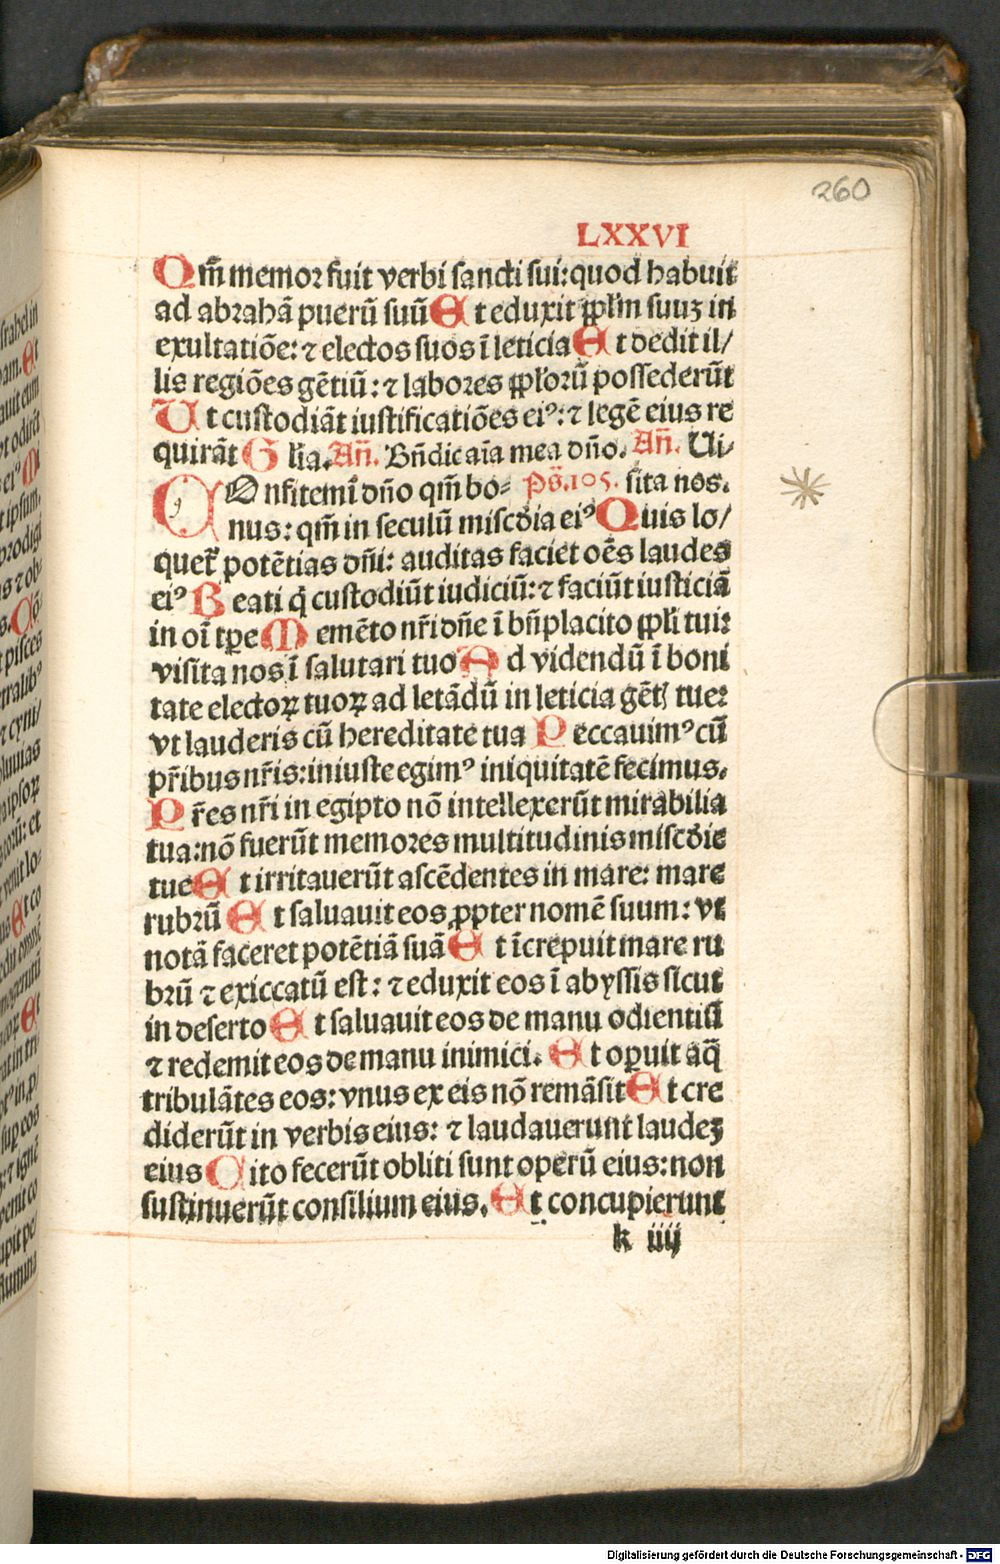 260
LXXVI
Qm̄ memor fuit verbi sancti sui: quod habuit
ad abrahā puerū suū Et eduxit ꝓpl̄m suuꝫ in
exultatiōe: ⁊ electos suos ī leticia Et dedit il/
lis regiōes gētiū: ⁊ labores ꝓpl̓orū possederūt
Ut custodiāt iustificatiōes eiꝰ: ⁊ legē eius re
quirāt Gl̓ia. Añ. Bn̄dic aīa mea dn̄o. Añ. Ui-
COnfitemī dn̄o qm̄ bo⸗ Ps̄. 105. sita nos.
nus: qm̄ in seculū misc̄dia eiꝰ Quis lo/
quet᷑ potētias dn̄i: auditas faciet oēs laudes
eiꝰ Beati q̄ custodiūt iudiciū: ⁊ faciūt iusticiā
in oī tꝑe Memēto nr̄i dn̄e ī bn̄placito ꝓpl̓i tui:
visita nos ī salutari tuo Ad videndū ī boni
tate electoꝝ tuoꝝ ad letādū in leticia gēt tue:
vt lauderis cū hereditate tua Peccauimꝰ cū
pr̄ibus nr̄is: iniuste egimꝰ iniquitatē fecimus.
Pr̄es nr̄i in egipto nō intellexerūt mirabilia
tua: nō fuerūt memores multitudinis misc̄die
tue Et irritauerūt ascēdentes in mare: mare
rubrū Et saluauit eos ꝓpter nomē suum: vt
notā faceret potētiā suā Et īcrepuit mare ru
brū ⁊ exiccatū est: ⁊ eduxit eos ī abyssis sicut
in deserto Et saluauit eos de manu odientiū
⁊ redemit eos de manu inimici. Et oꝑuit aq̄
tribulātes eos: vnus ex eis nō remāsit Et cre
diderūt in verbis eius: ⁊ laudauerunt laudeꝫ
eius Cito fecerūt obliti sunt operū eius: non
sustinuerūt consilium eius. Et concupierunt
k iiij
Digitalisierung gefördert durch die Deutsche Forschungsgemeinschaft - DFG